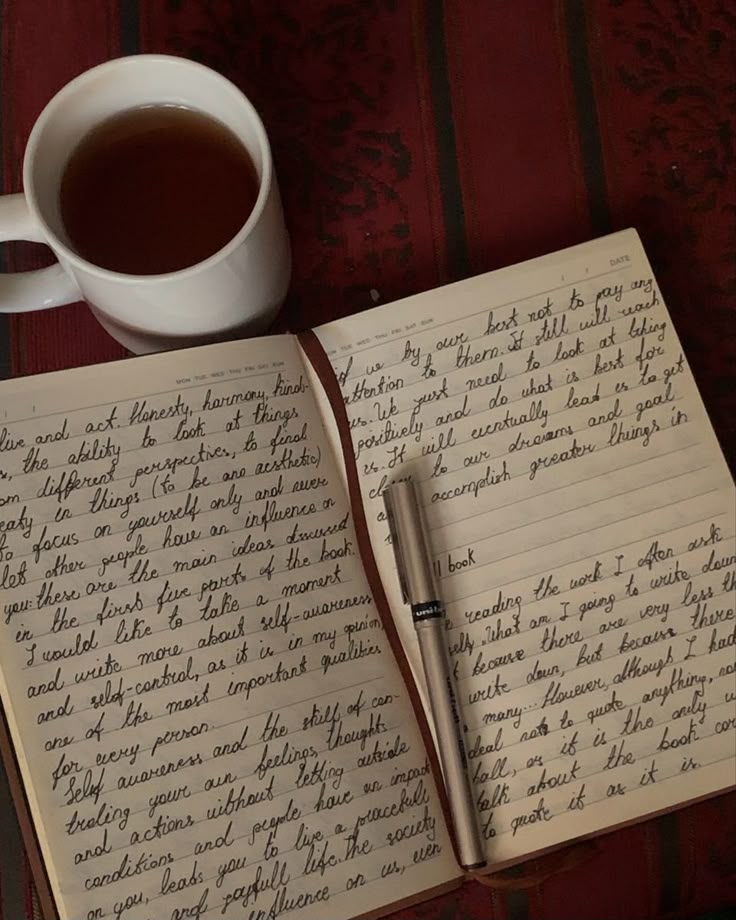 MON TUE WED THU FRI SAT SUN
live and act. Honesty, harmony, kind-
s, the ability to look at things
om different perspectives, to find
eaty in things (to be ano aesthetic)
to focus on yourself only and never
let other people have an influence on
you: these are the main ideas discussed
in the first five parts of the book.
I would like to take a moment
and write more about self-awareness
and self-control, as it is in my opinion
one of the most important qualities
for every person.
Self awareness and the skill of con-
troling your own feelings, thoughts
and actions without letting outside
conditions and people have an impact
on you, leads you to live a peacefull
and joyfull life. The society
influence on us, even
MON TUE WED THU FRI SAT SUN
DATE
if we by our best not to pay any
attention to them. It still will reach
us. We just need to look at thing
positively and do what is best for
us. It will eventually lead us to get
closer to our dreams and goal
accomplish greater things in
book
reading the work I often ask
self, "What am I going to write down
t because there are very less th
write down, but because there
many... However, although I had
deal not to quote anything, no
all, as it is the only w
talk about the book cor
to quote it as it is.
uni